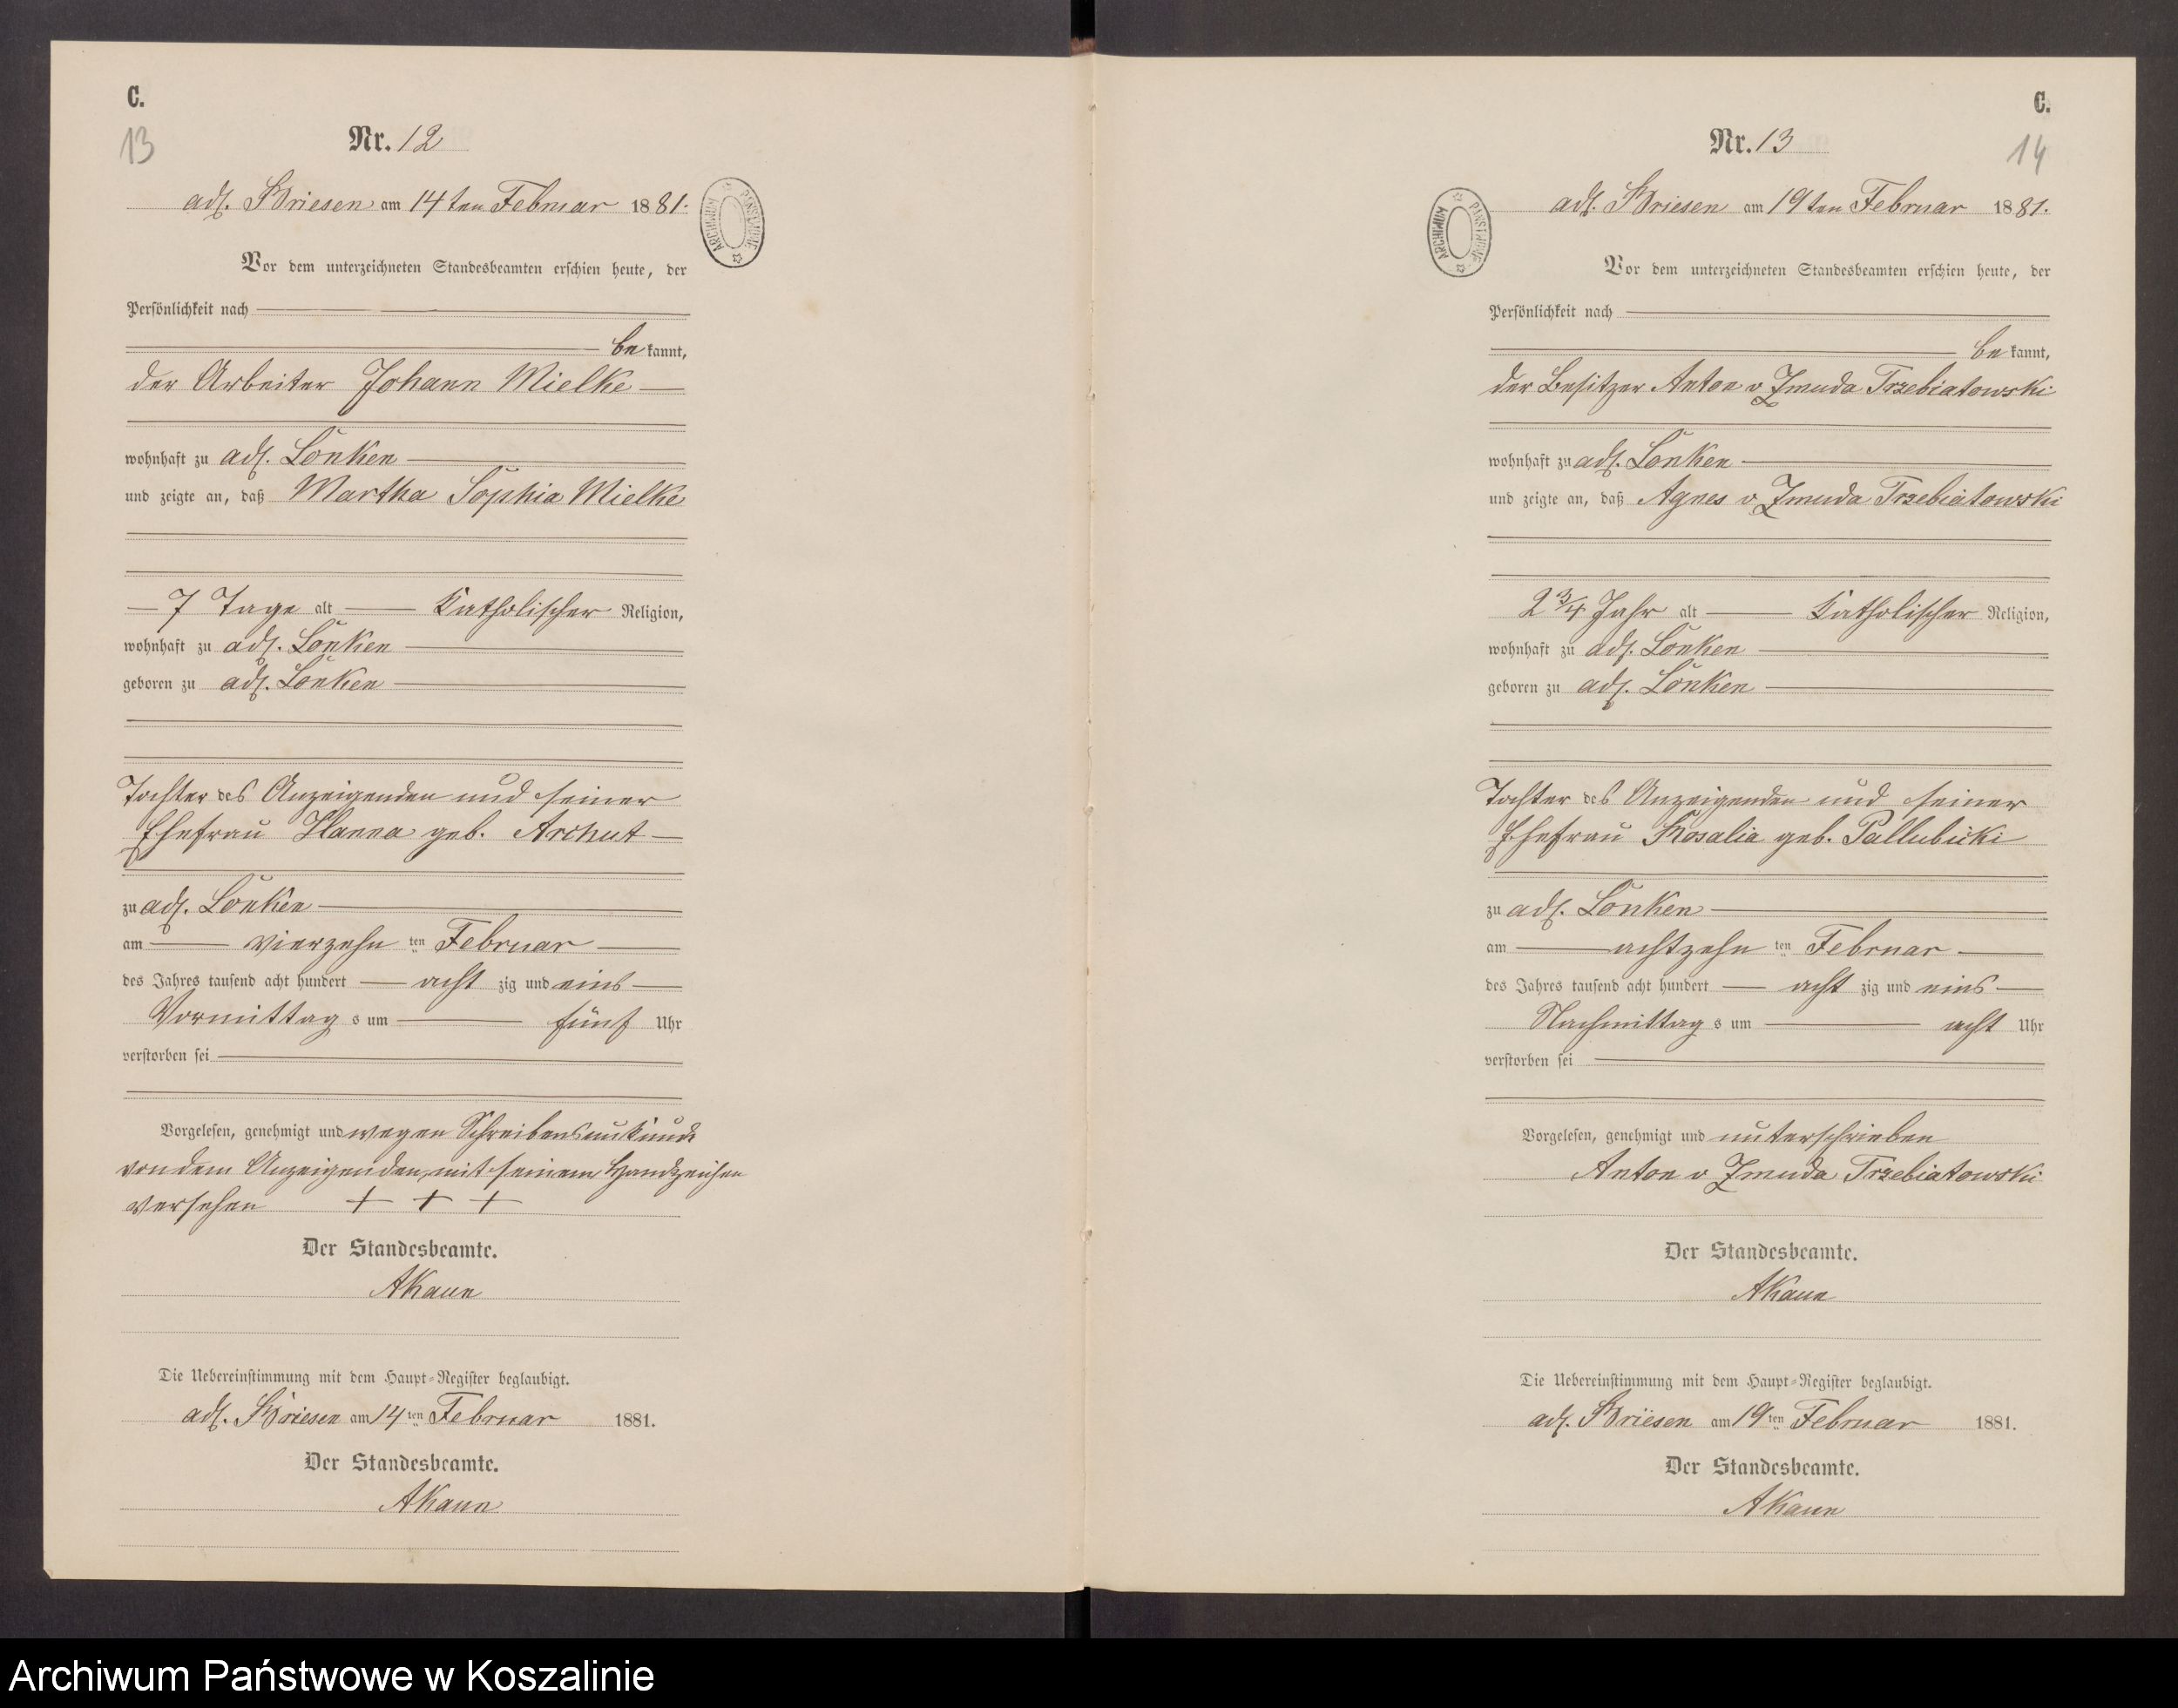 C.
13
Nr. 12
adl. Briesen am 14ten Februar 1881.
ARCHIWUM PAŃSTWOWE
Vor dem unterzeichneten Standesbeamten erschien heute, der
Persönlichkeit nach
bekannt,
der Arbeiter Johann Mielke
wohnhaft zu adl. Lonken
und zeigte an, daß Martha Sophia Mielke
7 Tage alt Katholischer Religion,
wohnhaft zu adl. Lonken
geboren zu adl. Lonken
Tochter des Anzeigenden und seiner
Ehefrau Hanna geb. Archut
zu adl. Lonken
am vierzehn ten Februar
des Jahres tausend acht hundert acht zig und eins
Vormittag s um fünf Uhr
verstorben sei
Vorgelesen, genehmigt und wegen Schreibensunkunde
von dem Anzeigenden mit seinem Handzeichen
versehen + + +
Der Standesbeamte.
AKaun
Die Uebereinstimmung mit dem Haupt-Register beglaubigt.
adl. Briesen am 14ten Februar 1881.
Der Standesbeamte.
AKaun
C.
14
Nr. 13
adl. Briesen am 19ten Februar 1881.
ARCHIWUM PAŃSTWOWE
Vor dem unterzeichneten Standesbeamten erschien heute, der
Persönlichkeit nach
bekannt,
der Besitzer Anton v Zmuda Trzebiatowski
wohnhaft zu adl. Lonken
und zeigte an, daß Agnes v Zmuda Trzebiatowski
2 3/4 Jahr alt Katholischer Religion,
wohnhaft zu adl. Lonken
geboren zu adl. Lonken
Tochter des Anzeigenden und seiner
Ehefrau Rosalia geb. Pallubicki
zu adl. Lonken
am achtzehn ten Februar
des Jahres tausend acht hundert acht zig und eins
Nachmittag s um acht Uhr
verstorben sei
Vorgelesen, genehmigt und unterschrieben
Anton v Zmuda Trzebiatowski
Der Standesbeamte.
AKaun
Die Uebereinstimmung mit dem Haupt-Register beglaubigt.
adl. Briesen am 19ten Februar 1881.
Der Standesbeamte.
AKaun
Archiwum Państwowe w Koszalinie